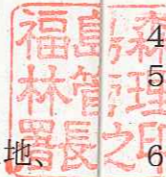 福島森
林管理
署長之印
4
5
地、
6